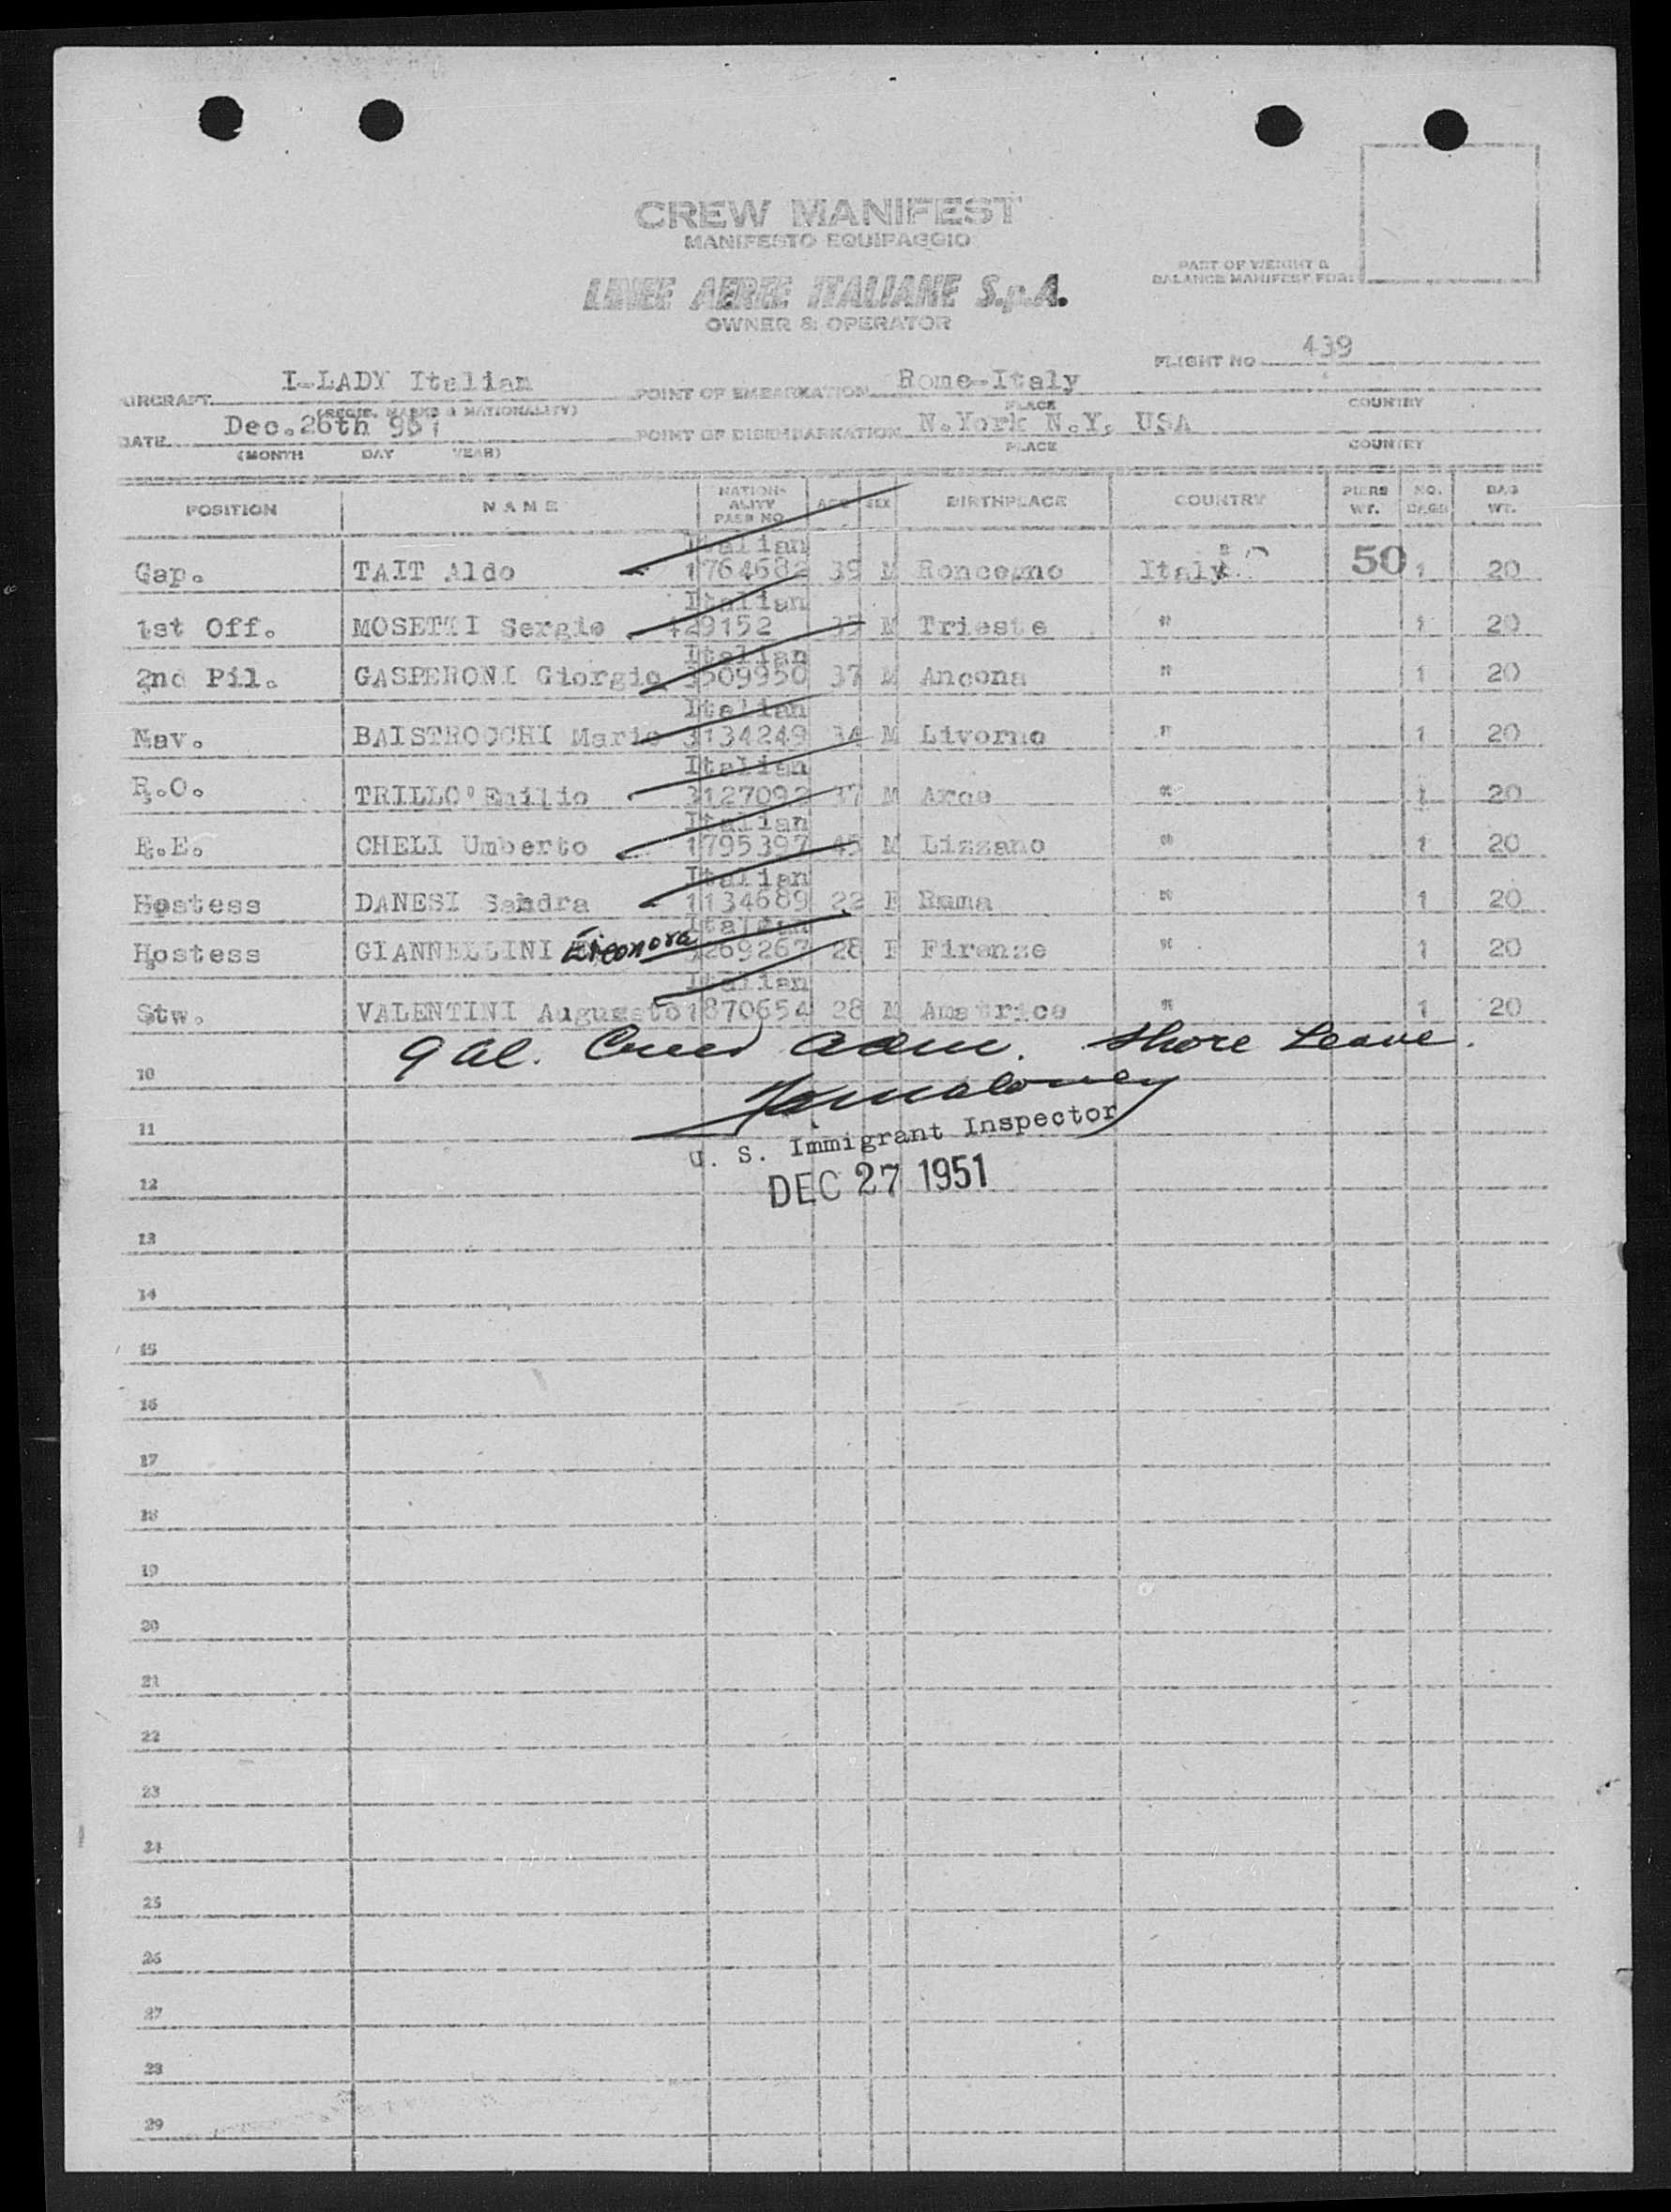 CREW MANIFEST
MANIFESTO EQUIPAGGIO
PART OF WEIGHT &
BALANCE MANIFEST FOR:
LINEE AEREE ITALIANE S.p.A.
OWNER & OPERATOR
FLIGHT NO 439
AIRCRAFT I-LADY Italian POINT OF EMBARKATION Rome-Italy
(REGIS. MARKS & NATIONALITY) PLACE COUNTRY
DATE Dec.26th 951 POINT OF DISEMBARKATION N.York N.Y. USA
(MONTH DAY YEAR) PLACE COUNTRY
POSITION NAME NATION-ALITY PASS NO. AGE SEX BIRTHPLACE COUNTRY PIERS WT. NO. BAGS BAG WT.
Italian
Cap. TAIT Aldo 1764682 39 M Roncegno Italy 50 1 20
Italian
1st Off. MOSETTI Sergio 429152 35 M Trieste " 1 20
Italian
2nd Pil. GASPERONI Giorgio 3509950 37 M Ancona " 1 20
Italian
Nav. BAISTROCCHI Mario 3134249 34 M Livorno " 1 20
Italian
R.O. TRILLO' Emilio 3127092 37 M Arce " 1 20
Italian
R.E. CHELI Umberto 1795397 45 M Lizzano " 1 20
Italian
Hostess DANESI Sandra 1134689 22 F Roma " 1 20
Italian
Hostess GIANNELLINI Eleonora 3269267 28 F Firenze " 1 20
Italian
Stw. VALENTINI Augussto 1870654 28 M Amatrice " 1 20
9 al. Crew adm. Shore Leave.
10
11
U. S. Immigrant Inspector
12
DEC 27 1951
13
14
15
16
17
18
19
20
21
22
23
24
25
26
27
28
29